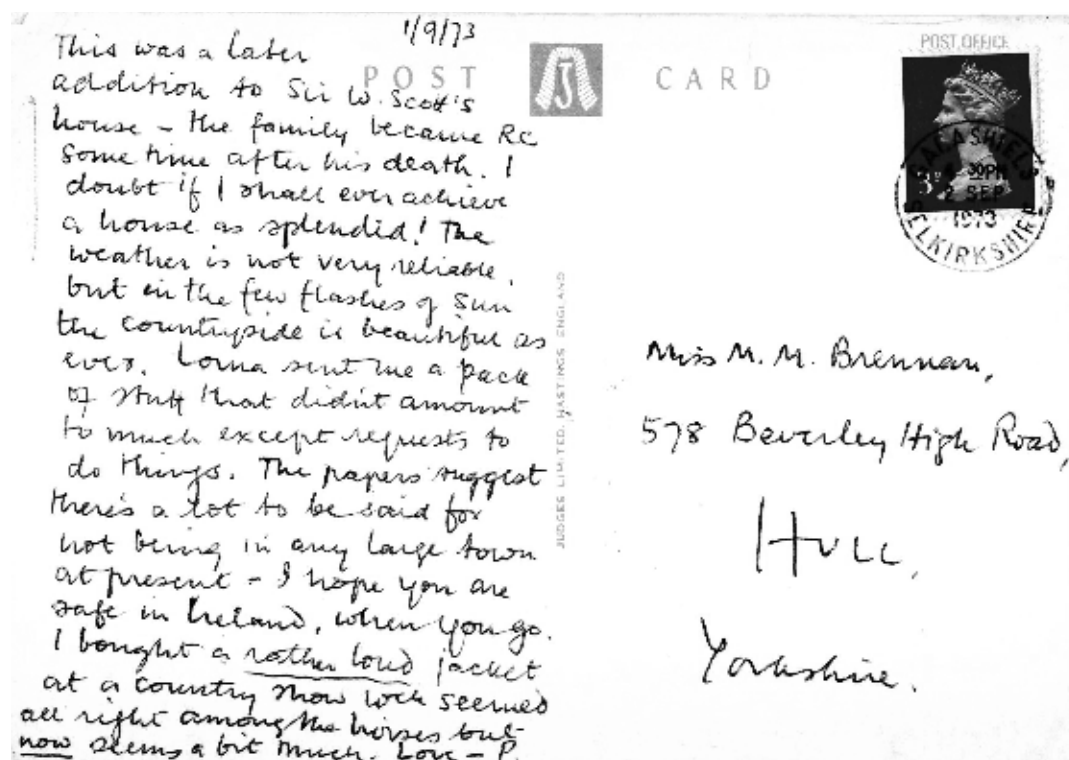 1/9/73
This was a later
addition to Sir W. Scott's
house – the family became RC
some time after his death. I
doubt if I shall ever achieve
a house as splendid! The
weather is not very reliable,
but in the few flashes of sun
the countryside is beautiful as
ever. Lorna sent me a pack
of stuff that didn't amount
to much except requests to
do things. The papers suggest
there's a lot to be said for
not being in any large town
at present – I hope you are
safe in Ireland, when you go.
I bought a rather loud jacket
at a country show wch seemed
all right among the horses but
now seems a bit much. Love – P.
POST CARD
J
JUDGES LIMITED, HASTINGS ENGLAND
POST OFFICE
GALASHIELS
30PM
2 SEP
1973
SELKIRKSHIRE
3
Miss M. M. Brennan,
578 Beverley High Road,
HULL,
Yorkshire.